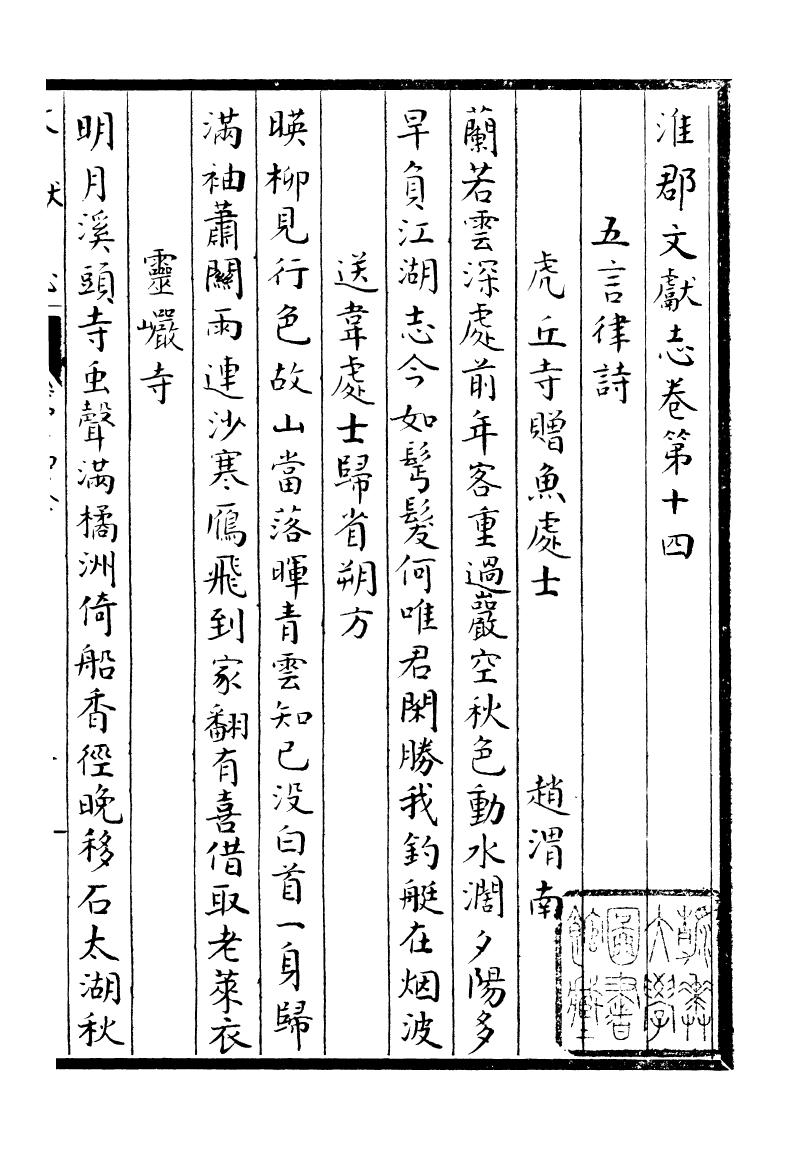 淮郡文獻志卷第十四
五言律詩
虎丘寺贈魚處士
趙渭南
蘭若雲深處前年客重過巖空秋色動水濶夕陽多
早負江湖志今如髩髮何唯君閑勝我釣艇在烟波
送韋處士歸省朔方
暎柳見行色故山當落暉青雲知已没白首一身歸
滿袖蕭關雨連沙寒鴈飛到家翻有喜借取老萊衣
靈巗寺
明月溪頭寺虫聲滿橘洲倚船香徑晚移石太湖秋
燕京大學圖書館藏